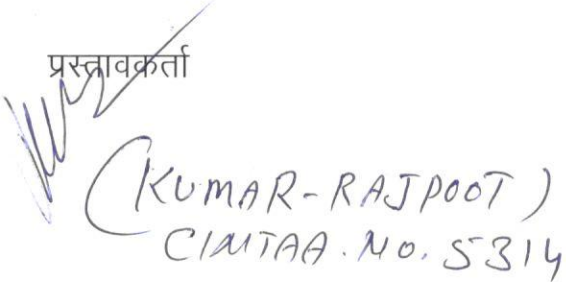 प्रस्तावकर्ता
(KUMAR-RAJPOOT)
CINTAA.NO.5314